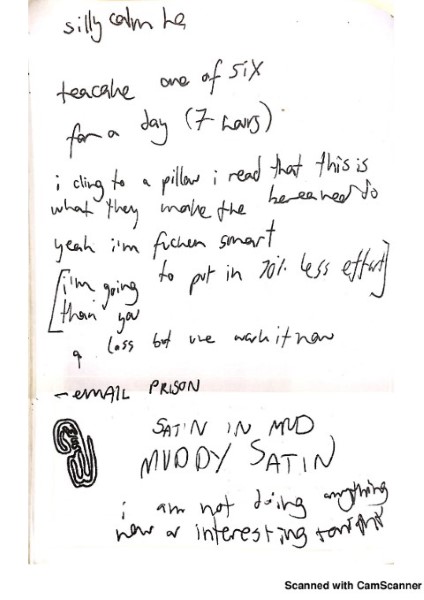 silly calm ha
teacake one of six
for a day (7 hours)
i cling to a pillow i read that this is
what they make the bereaved do
yeah i'm fucken smart
[i'm going to put in 70% less effort]
than you
a loss but we work it now
- EMAIL PRISON
SATIN IN MUD
MUDDY SATIN
i am not doing anything
new or interesting
Scanned with CamScanner